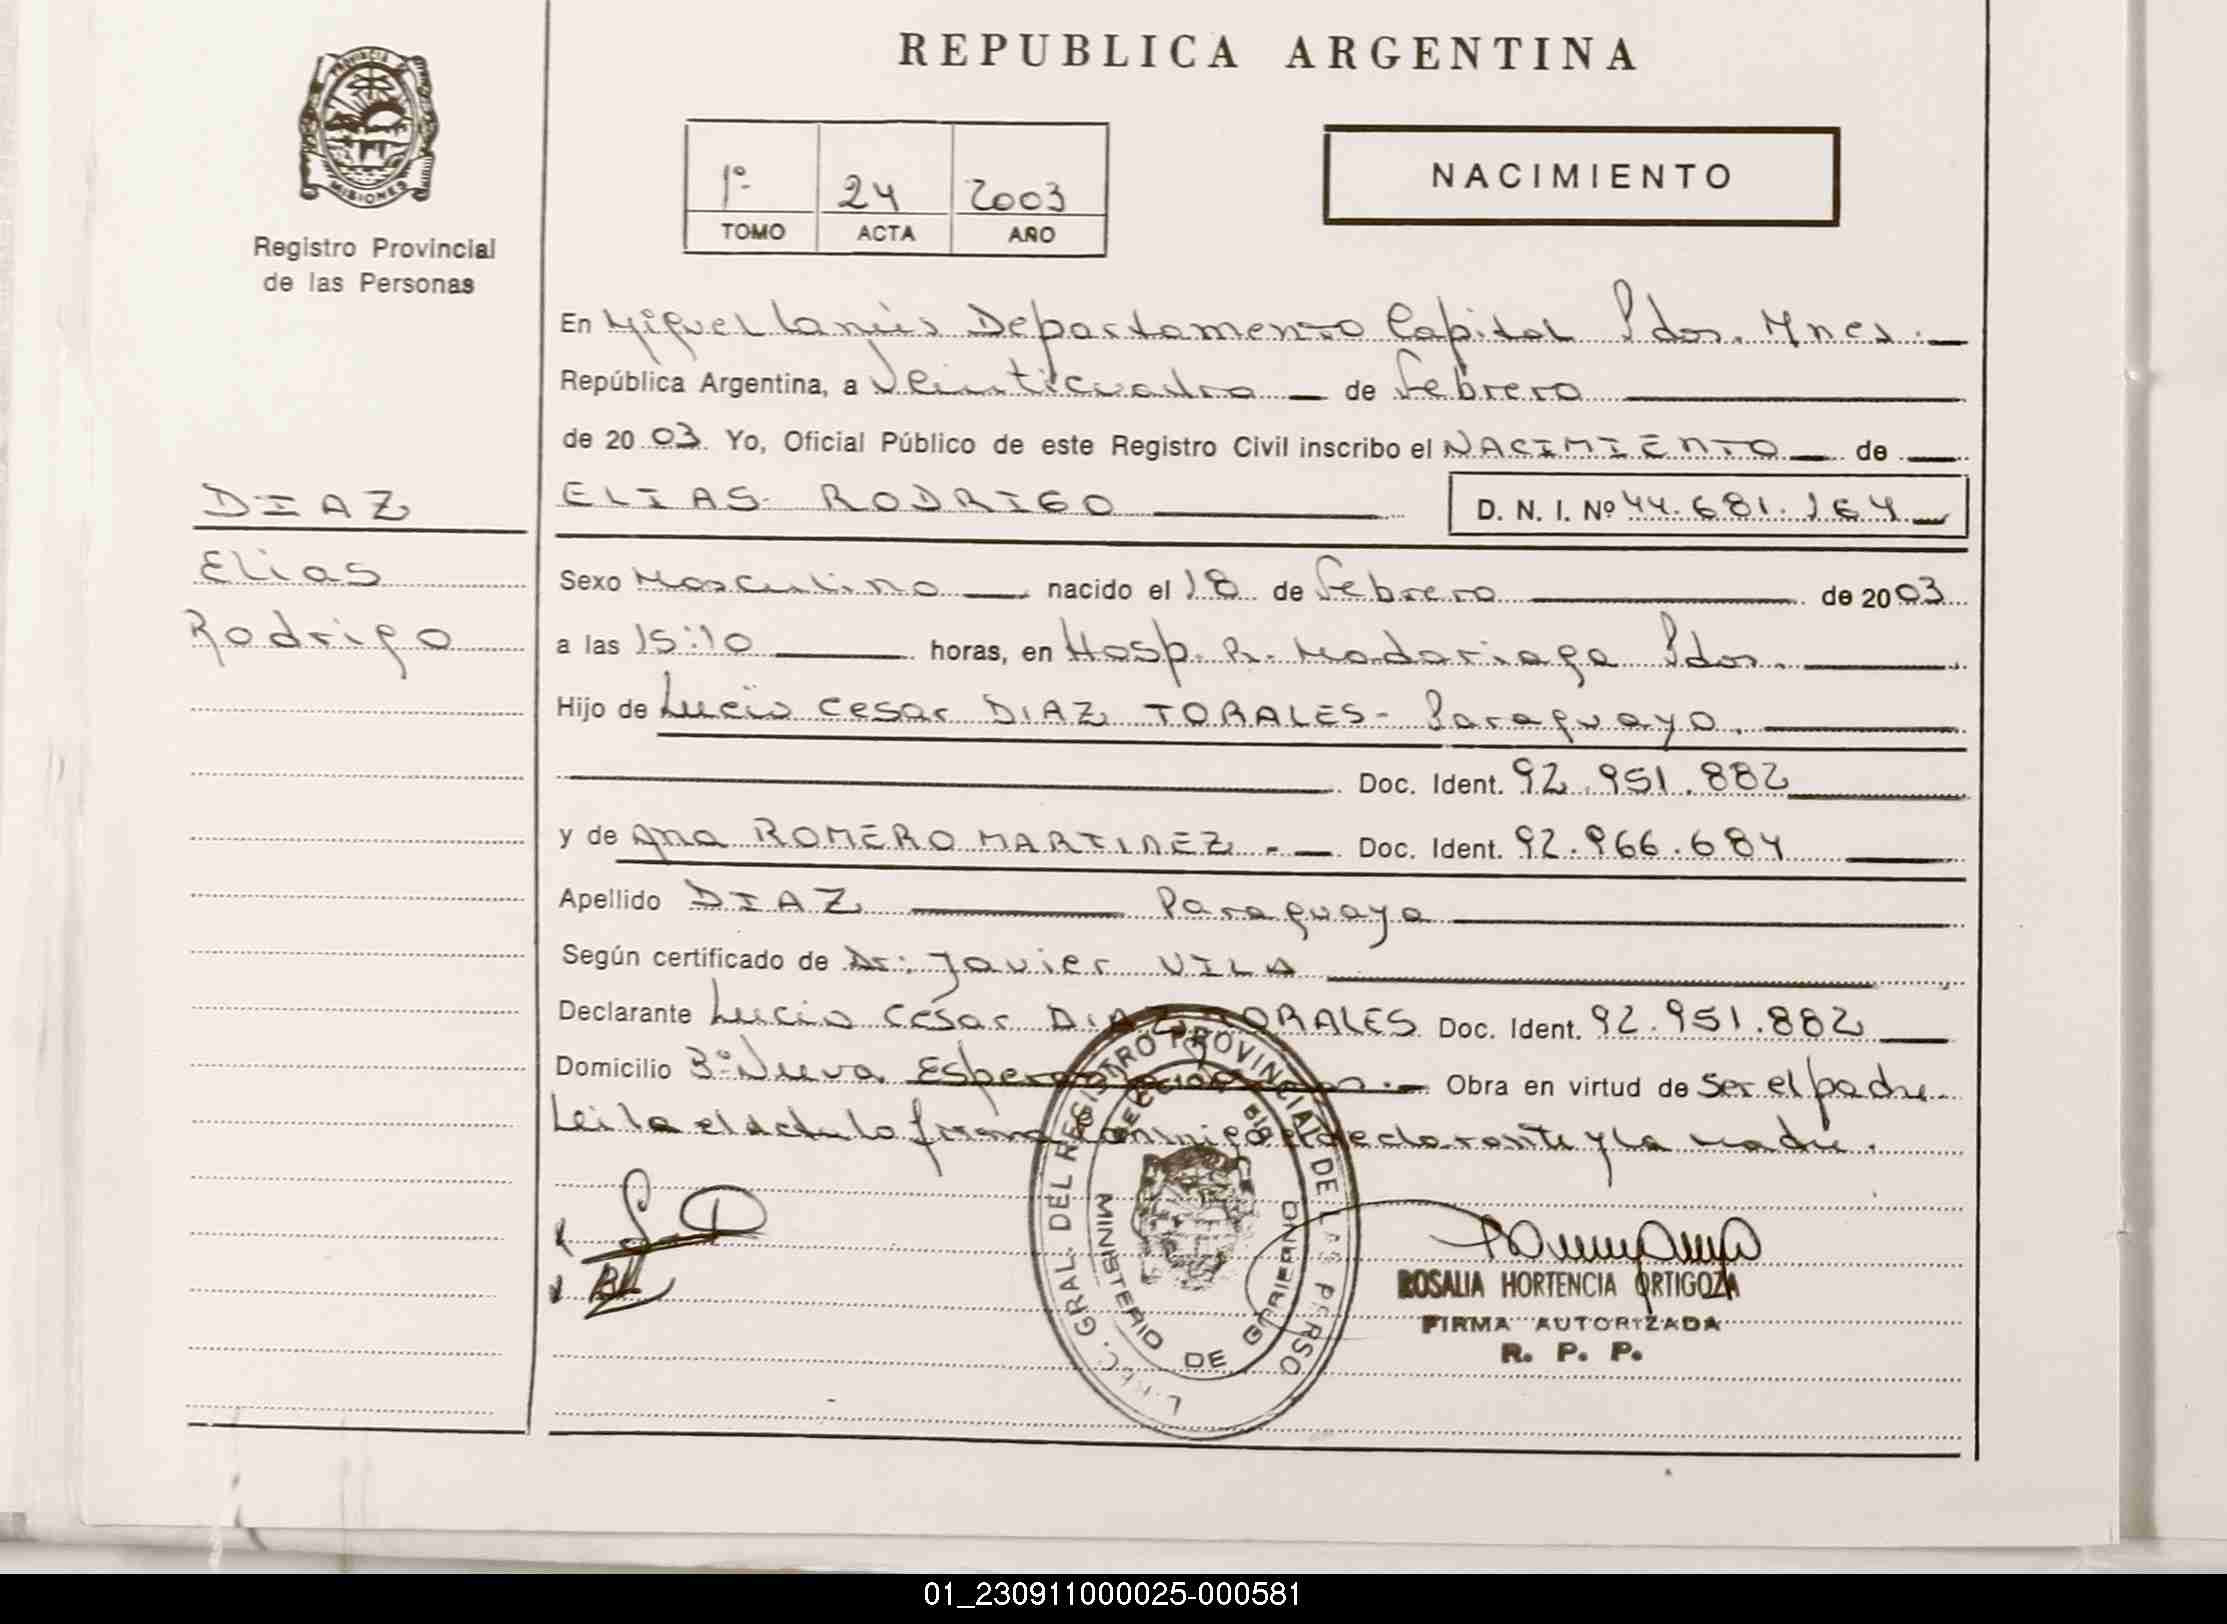 REPUBLICA ARGENTINA
PROVINCIA DE
MISIONES
Registro Provincial
de las Personas
1º 24 2003
TOMO ACTA AÑO
NACIMIENTO
En Miguel Lanús Departamento Capital Pdas. Mnes.
República Argentina, a Veinticuatro de Febrero
de 2003. Yo, Oficial Público de este Registro Civil inscribo el NACIMIENTO de
ELIAS RODRIGO D. N. I. Nº 44.681.164
DIAZ
Elias
Rodrigo
Sexo Masculino nacido el 18 de Febrero de 2003
a las 15:10 horas, en Hosp. R. Madariaga Pdas.
Hijo de Lucio Cesar DIAZ TORALES - Paraguayo.
Doc. Ident. 92.951.882
y de Ana ROMERO MARTINEZ.- Doc. Ident. 92.966.684
Apellido DIAZ Paraguaya
Según certificado de Dr: Javier VILA
Declarante Lucio Cesar DIAZ TORALES Doc. Ident. 92.951.882
Domicilio Bº Nueva Esperanza Obra en virtud de Ser el padre
Leida el acta la firma conmigo el declarante y la madre.
GRAL. DEL REGISTRO PROVINCIAL DE LAS PERSO
MINISTERIO DE GOBIERNO
ROSALIA HORTENCIA ORTIGOZA
FIRMA AUTORIZADA
R. P. P.
01_230911000025-000581